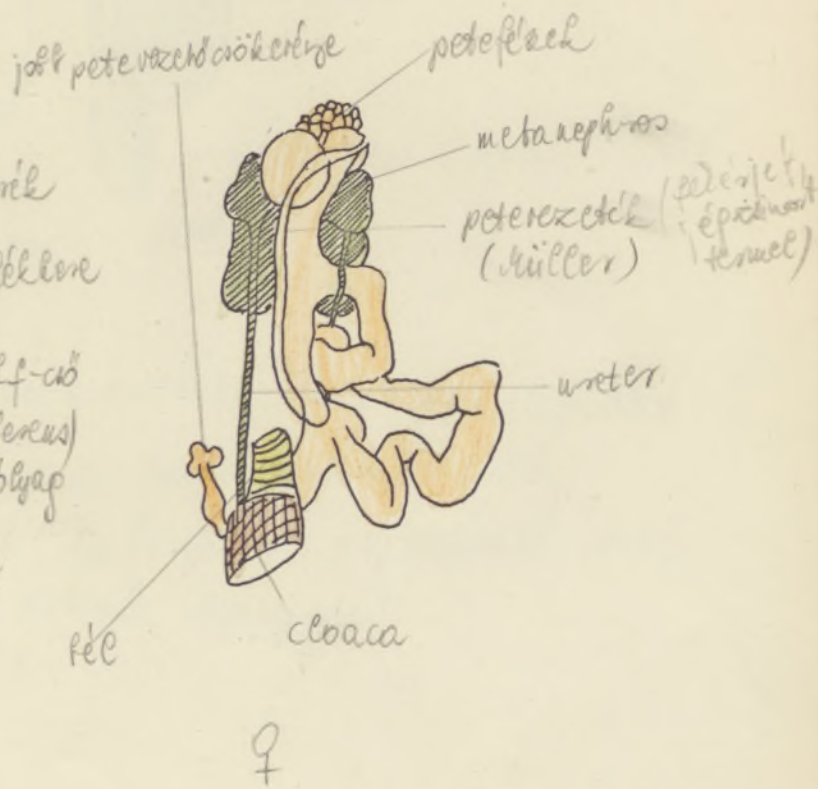 jobb petevezető csökevénye
petefészek
metanephros
petevezeték
(Müller)
(fehérjét,
termel)
ureter
f-cső
bél
cloaca
♀